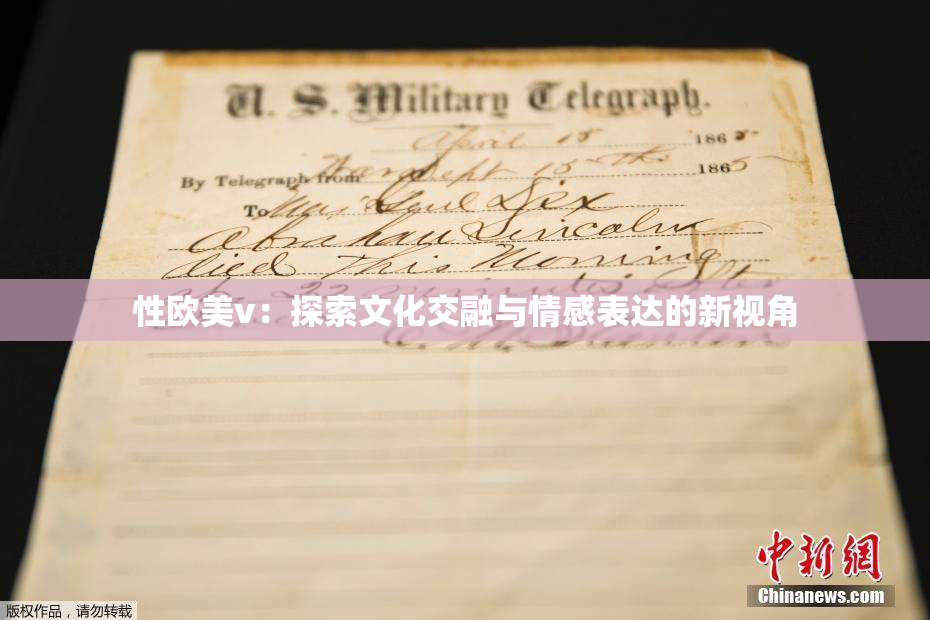 U. S. Military Telegraph.
April 15 1865
By Telegraph from War Dept 15th 1865
To Maj Genl Dix
Abraham Lincoln
died This Morning
22 minutes after
性欧美v：探索文化交融与情感表达的新视角
中新網
Chinanews.com
版权作品，请勿转载